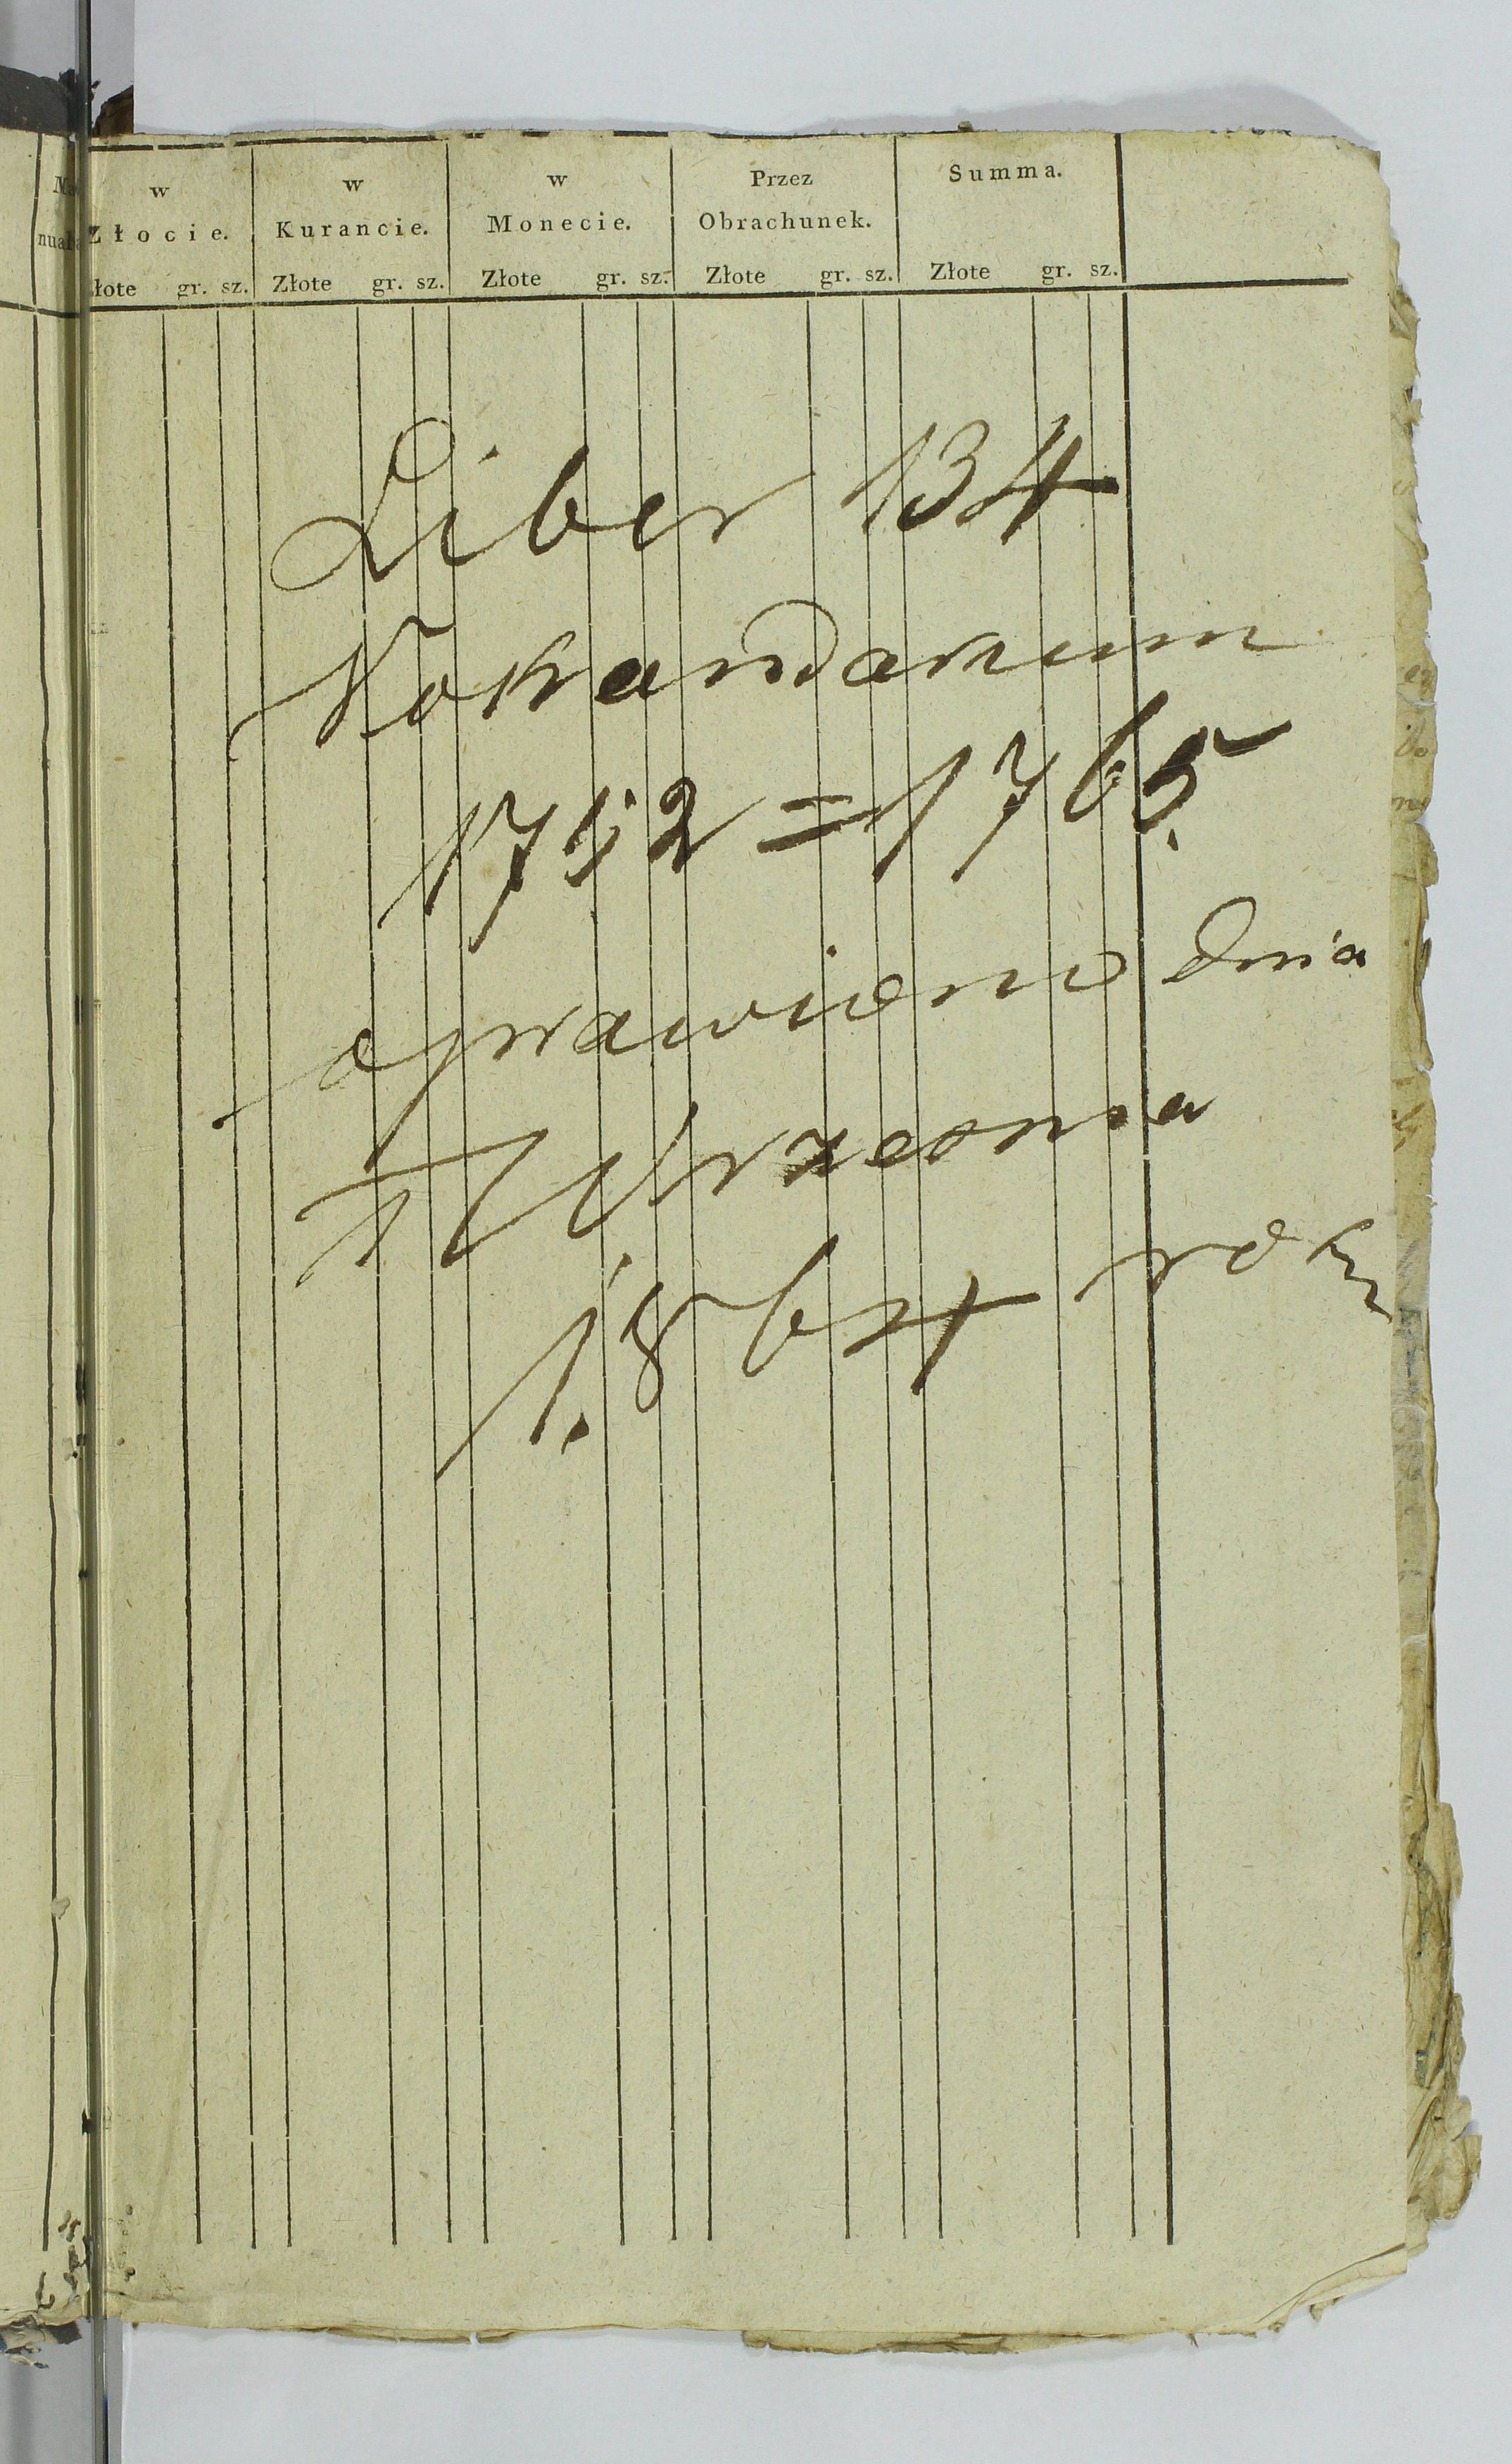 w w w Przez Summa.
Złocie. Kurancie. Monecie. Obrachunek.
gr. sz. Złote gr. sz. Złote gr. sz. Złote gr. sz. Złote gr. sz.
Liber 134
Vokandarum
1752=1765
oprawiono dnia
Września
1864 roku